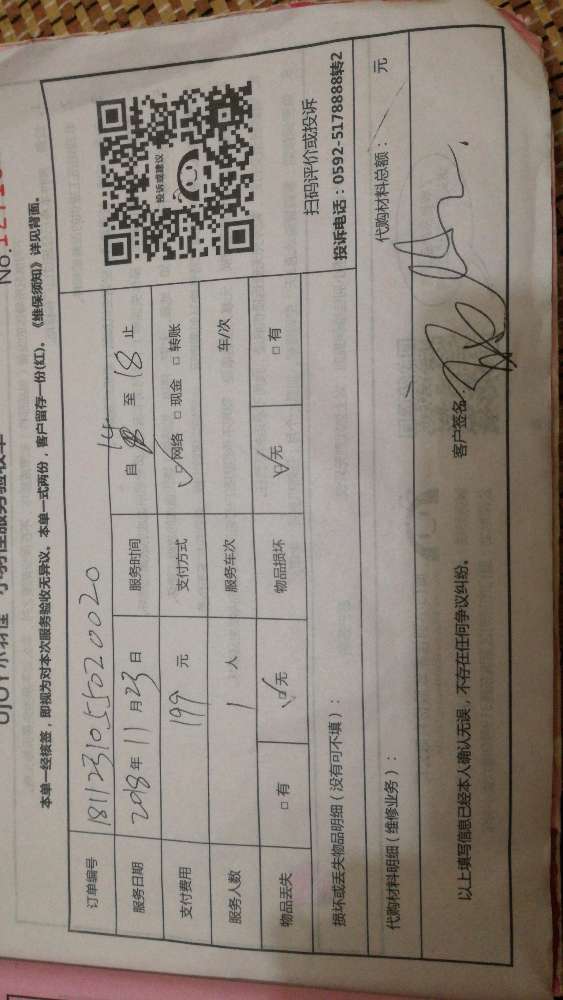 本单一经核签，即视为对本次服务验收无异议。本单一式两份，客户留存一份(红)。《维保须知》详见背面。
订单编号 18112310551020020
服务日期 2018年11月23日 服务时间 自14至18止
支付费用 199元 支付方式 网络 现金 转账
服务人数 1人 服务车次 车/次
物品丢失 有 无 物品损坏 无 有
投诉或建议
扫码评价或投诉
投诉电话：0592-5178888转2
损坏或丢失物品明细（没有可不填）：
代购材料明细（维修业务）： 代购材料总额： 元
以上填写信息已经本人确认无误，不存在任何争议纠纷。 客户签名：